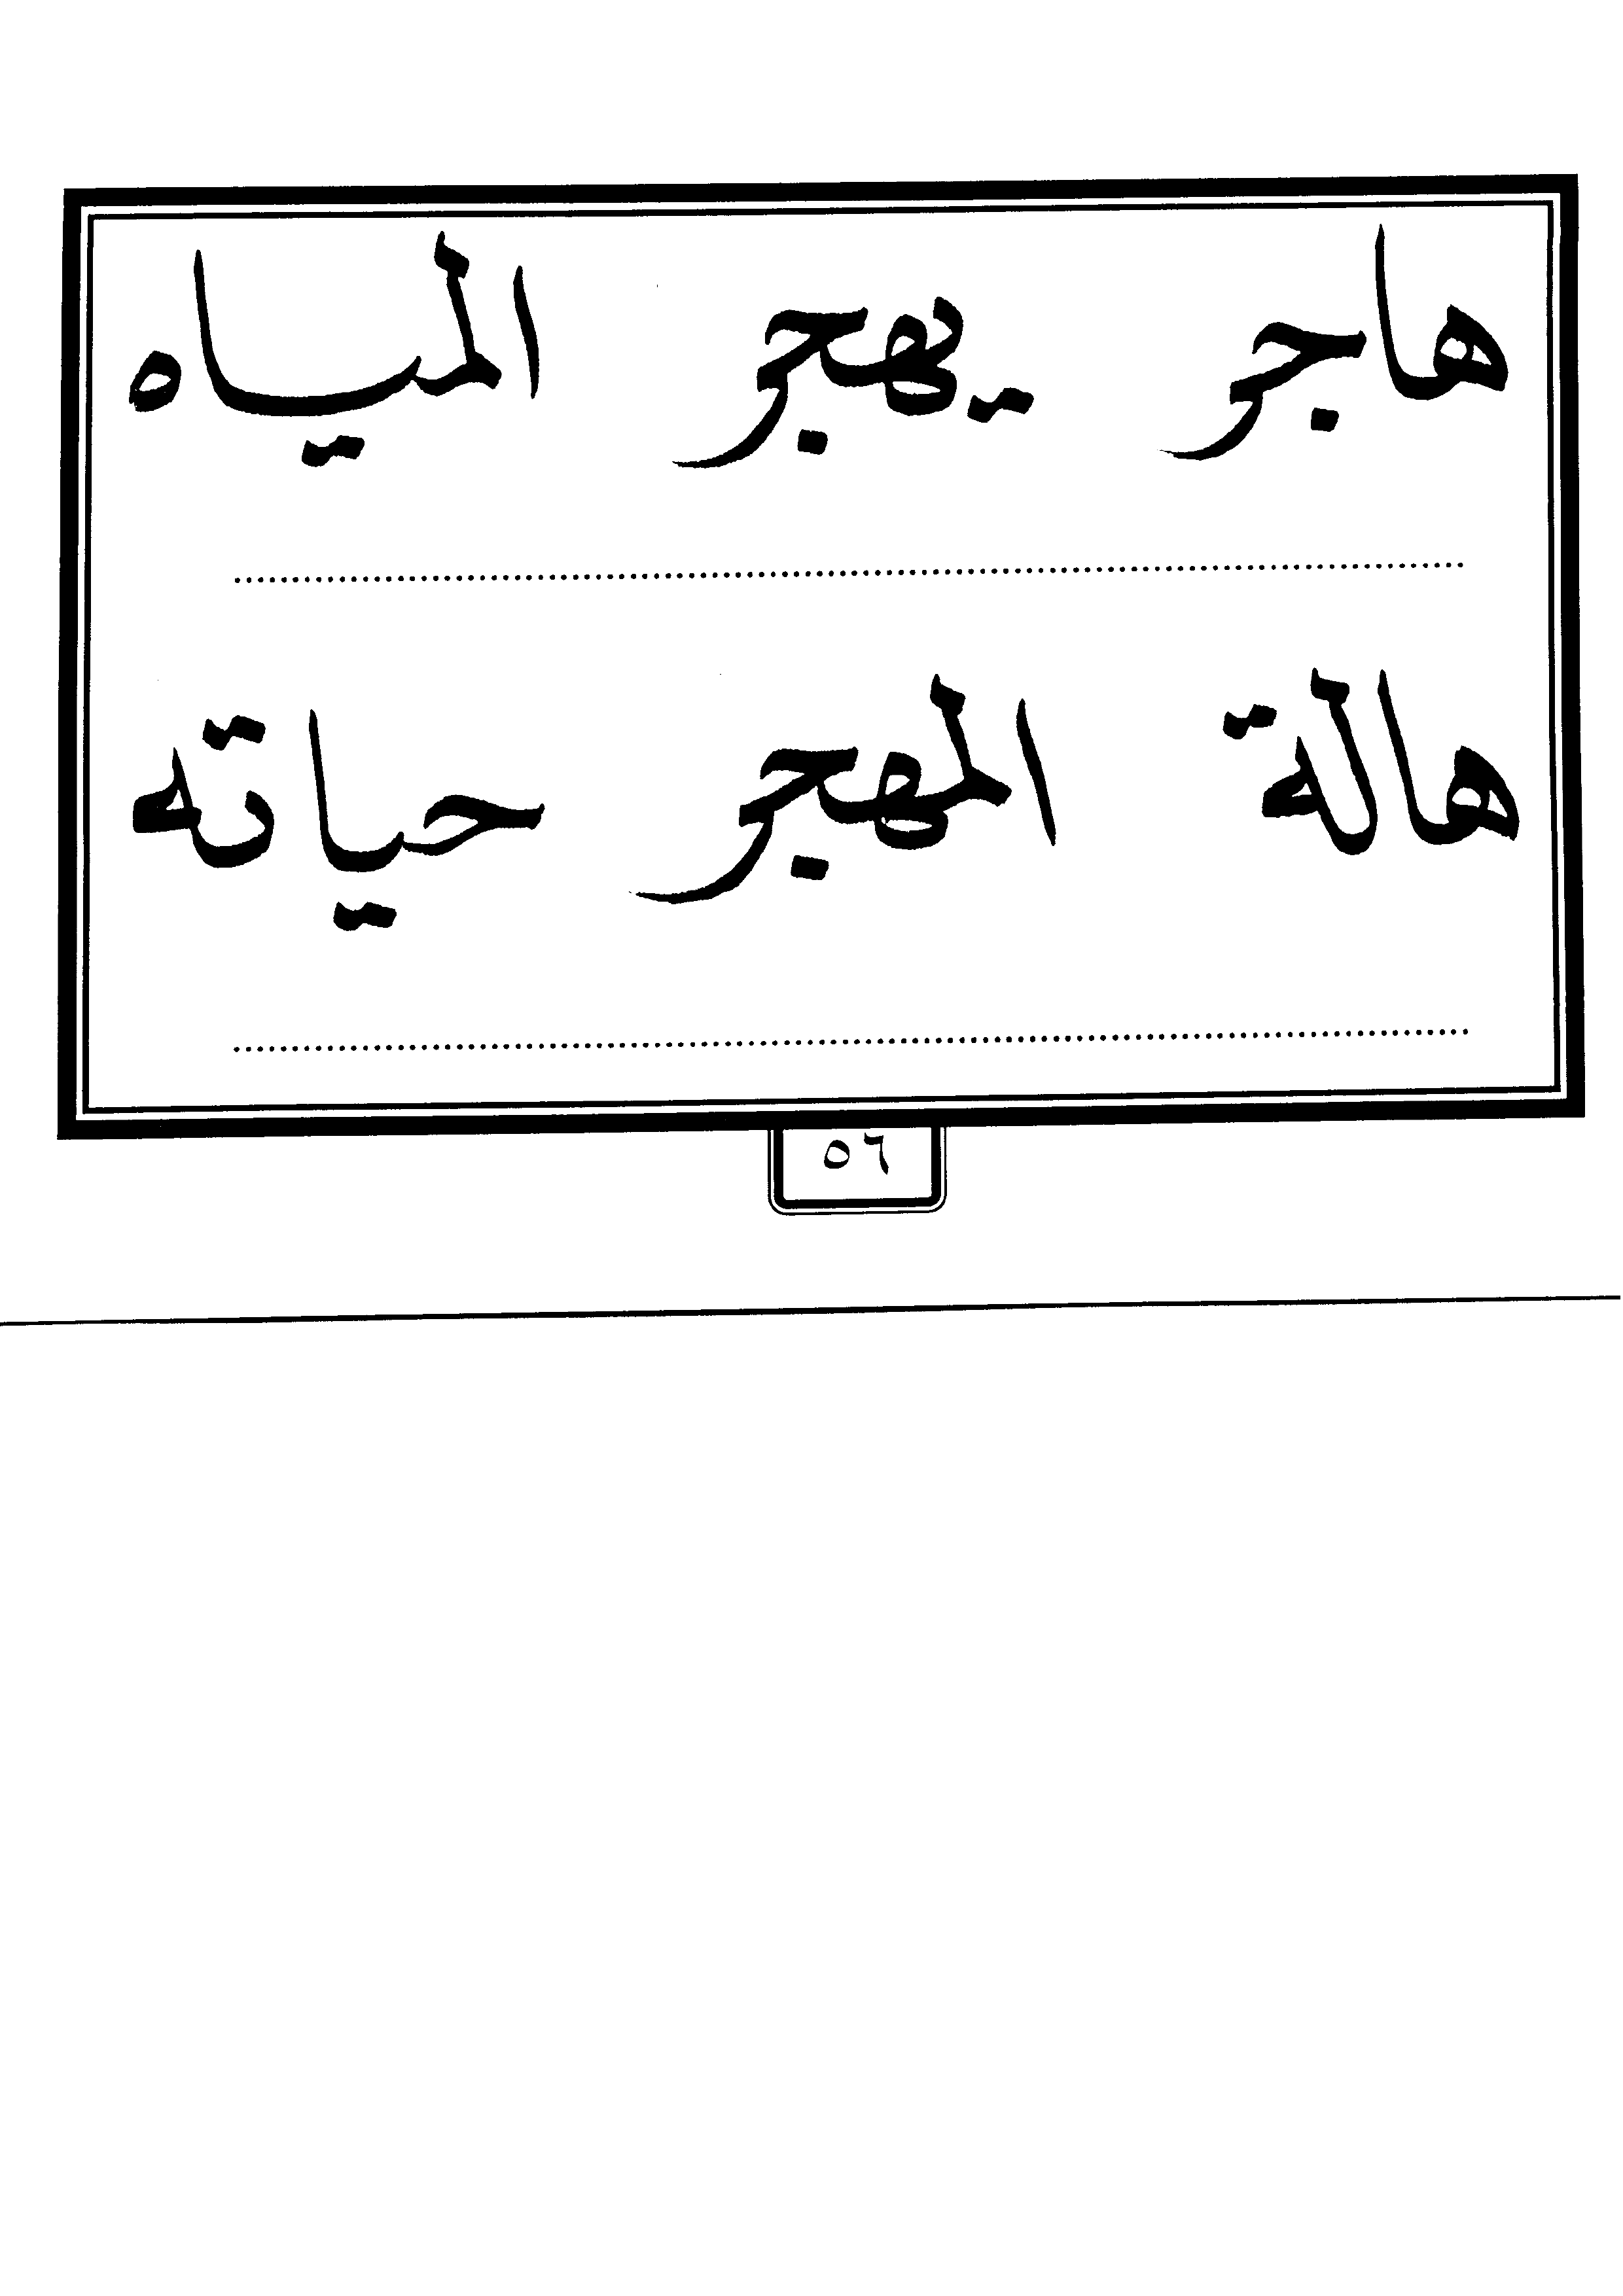 هاجر يهجر المياه
هالة المهجر حياته
٥٦